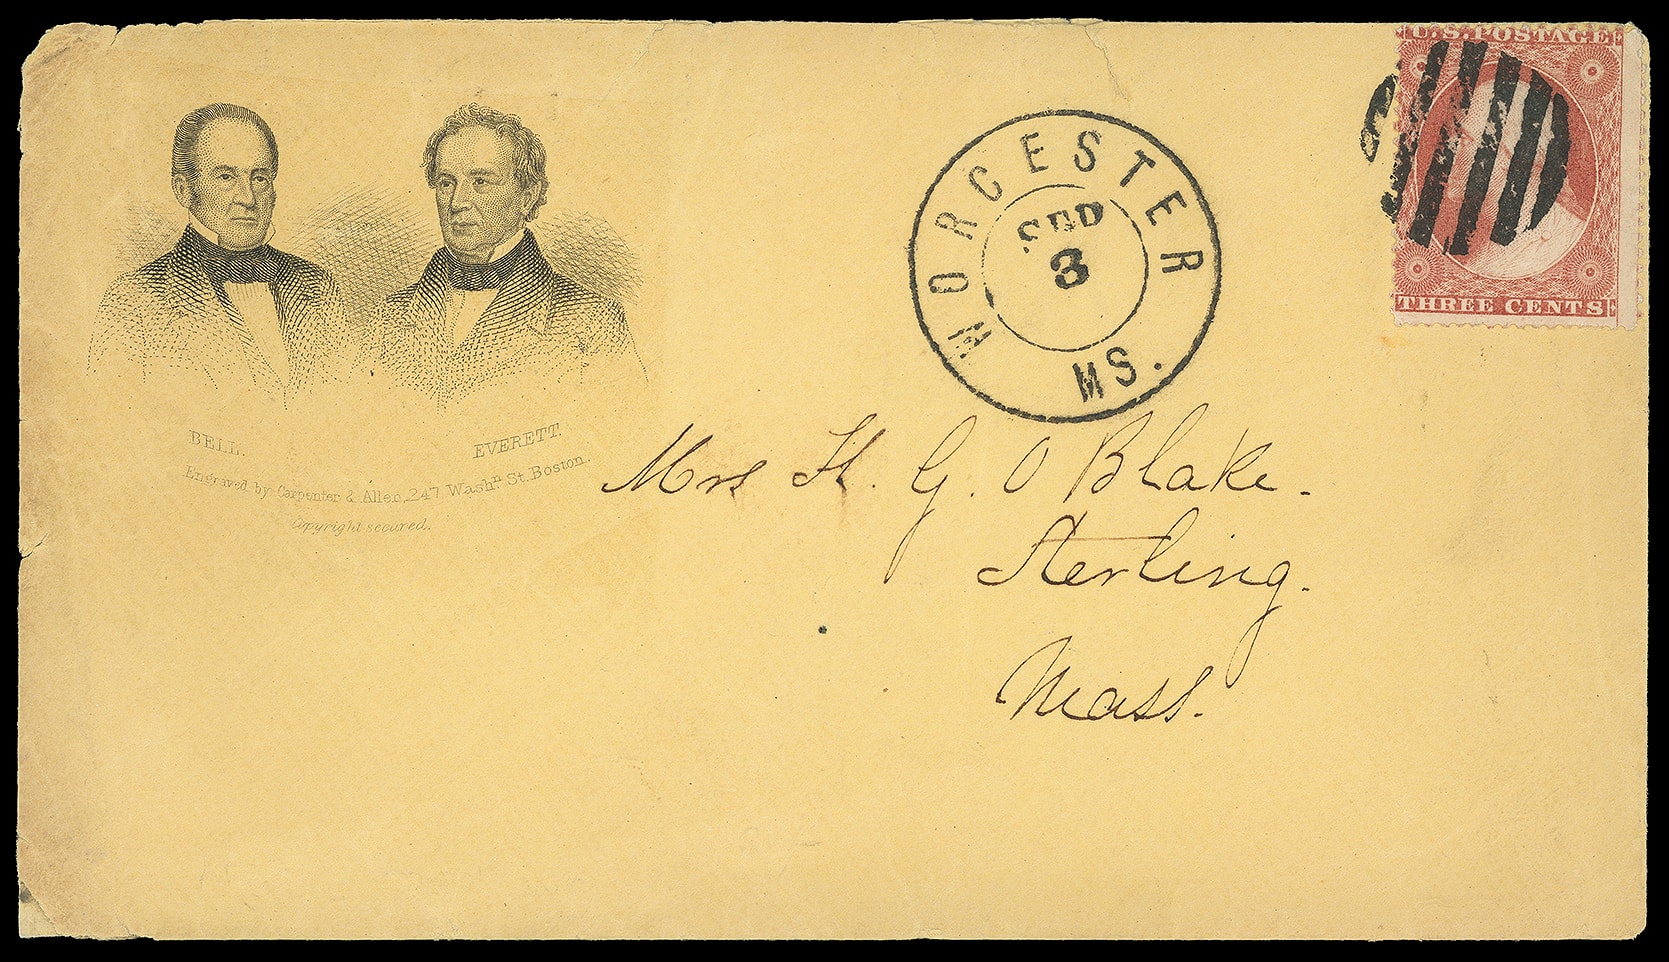 BELL.
EVERETT.
Engraved by Carpenter & Allen, 247 Washn. St. Boston.
Copyright secured.
WORCESTER
MS.
SEP
3
U.S. POSTAGE
THREE CENTS
Mrs H. G. O Blake.
Sterling.
Mass.